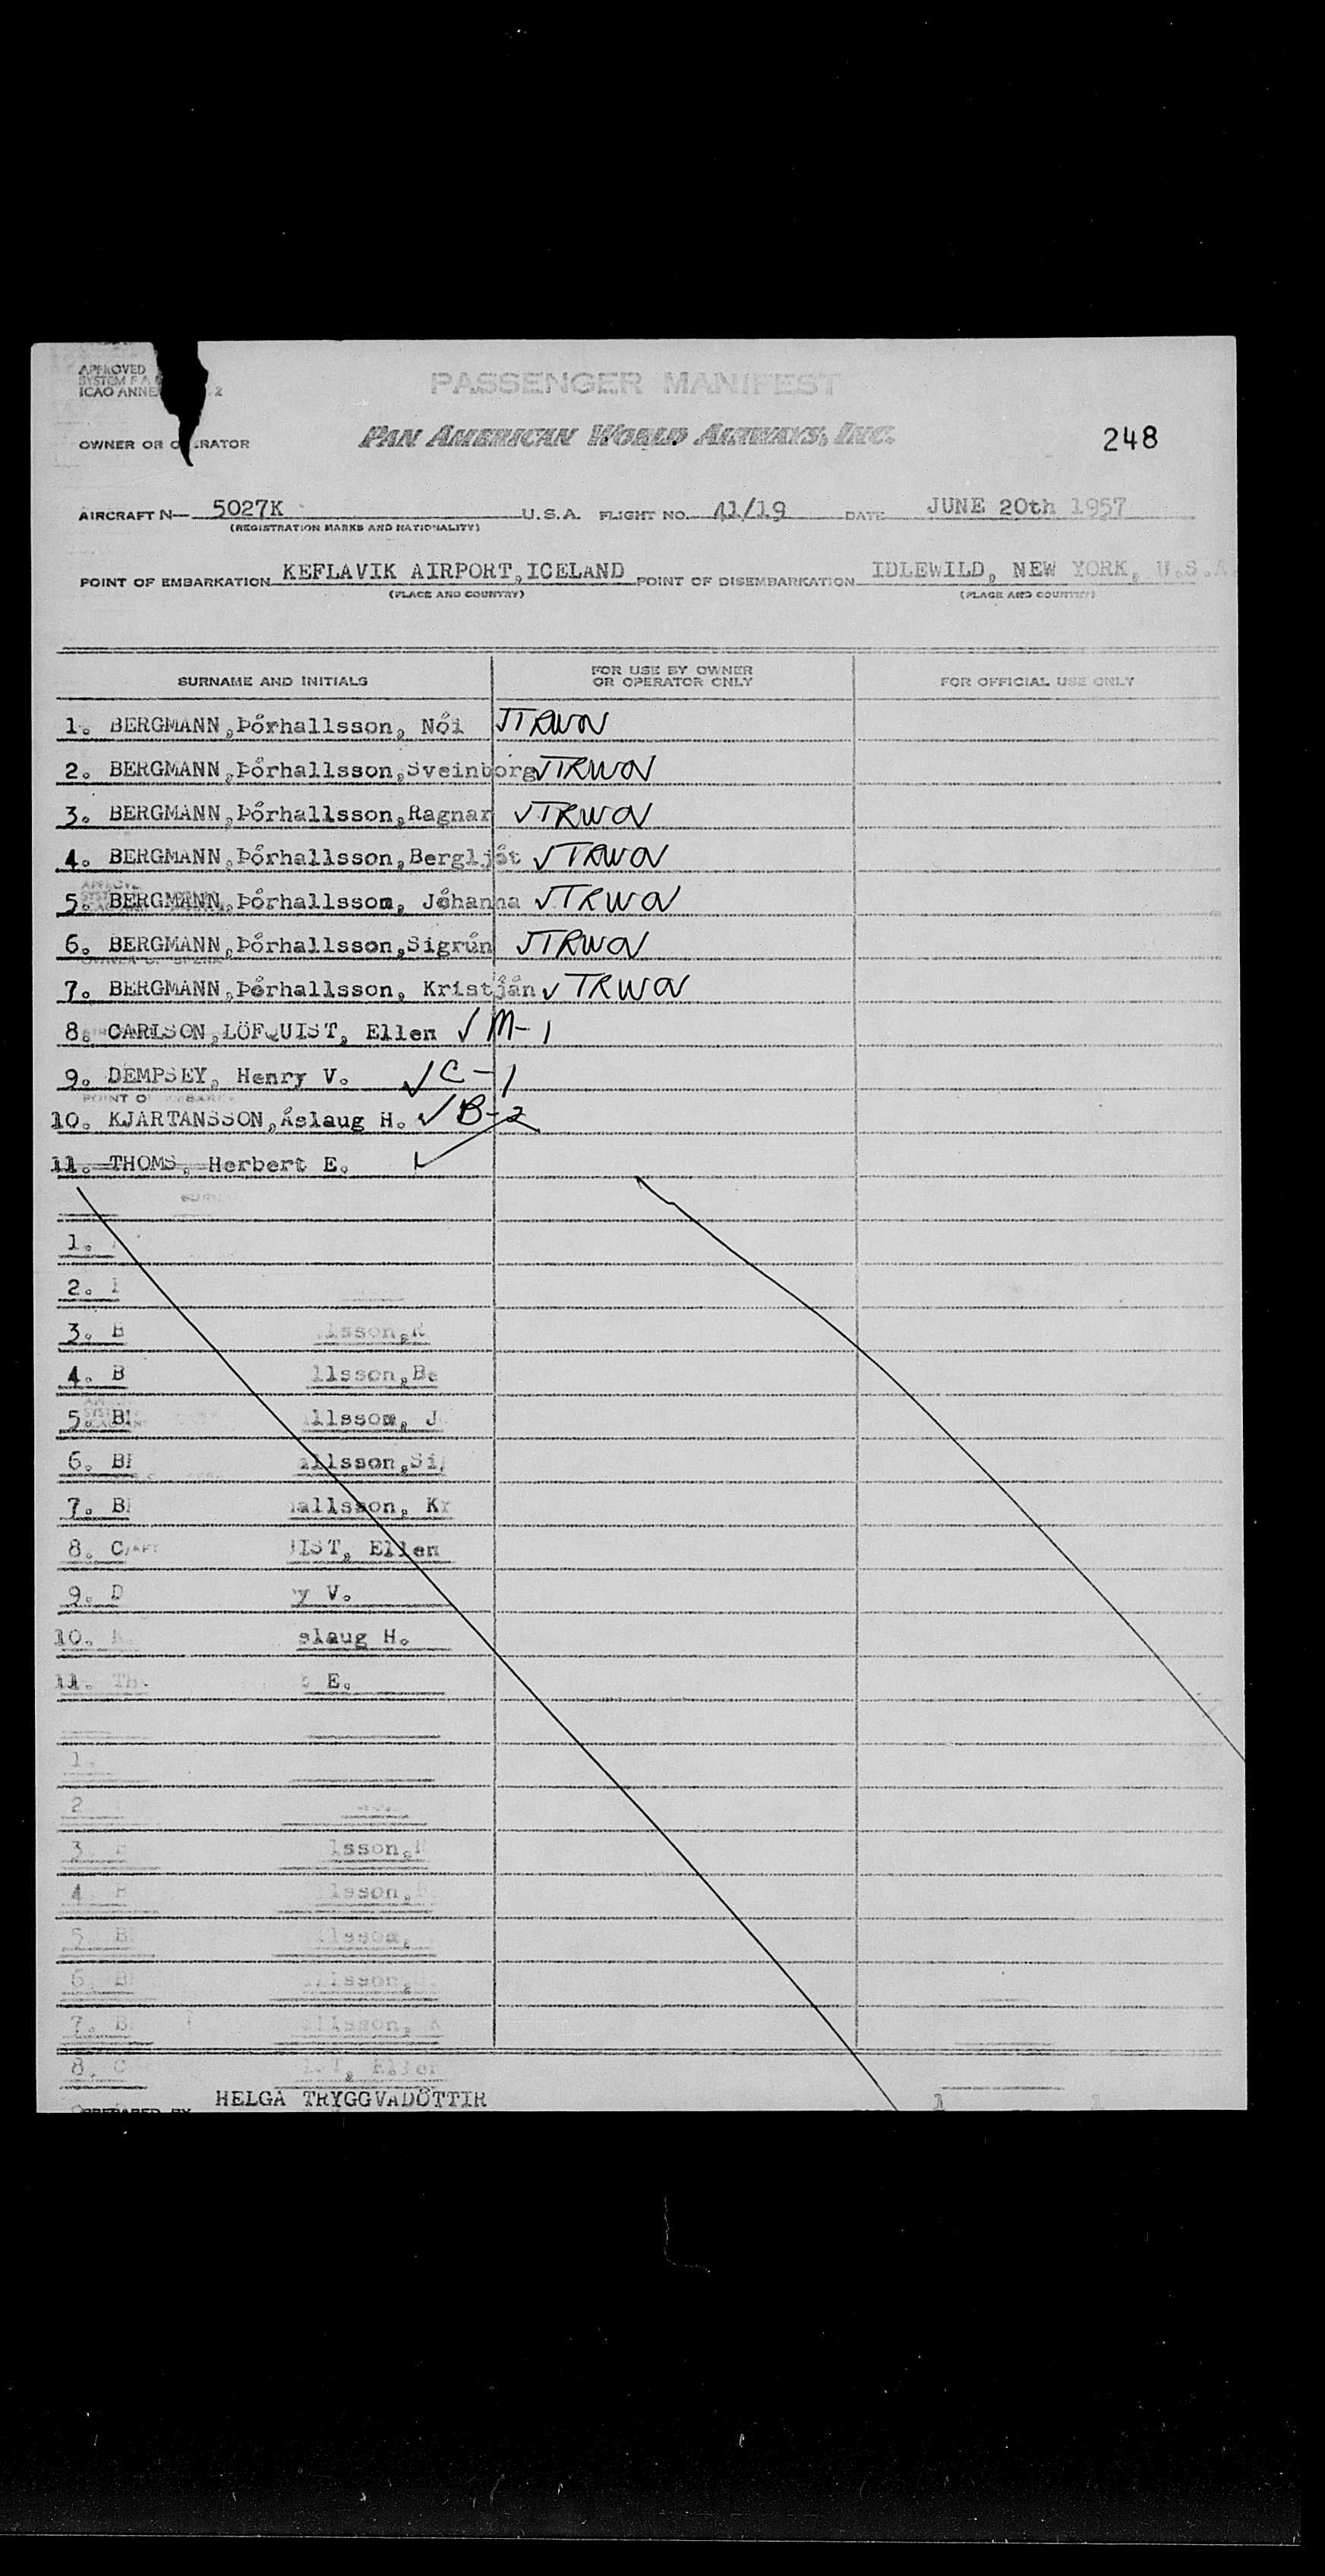 APPROVED
SYSTEM F A
ICAO ANNE 2
PASSENGER MANIFEST
OWNER OR OPERATOR PAN AMERICAN WORLD AIRWAYS, INC. 248
AIRCRAFT N— 5027K U.S.A. FLIGHT NO. 41/19 DATE JUNE 20th 1957
(REGISTRATION MARKS AND NATIONALITY)
POINT OF EMBARKATION KEFLAVIK AIRPORT,ICELAND POINT OF DISEMBARKATION IDLEWILD, NEW YORK, U.S.A
(PLACE AND COUNTRY) (PLACE AND COUNTRY)
SURNAME AND INITIALS FOR USE BY OWNER OR OPERATOR ONLY FOR OFFICIAL USE ONLY
1. BERGMANN,Þórhallsson, Nói √TRWOV
2. BERGMANN,Þórhallsson,Sveinborg √TRWOV
3. BERGMANN,Þórhallsson,Ragnar √TRWOV
4. BERGMANN,Þórhallsson,Bergljót √TRWOV
5. BERGMANN,Þórhallssom, Jóhanna √TRWOV
6. BERGMANN,Þórhallsson,Sigrún √TRWOV
7. BERGMANN,Þórhallsson, Kristján √TRWOV
8. CARLSON,LÖFQUIST, Ellen √ M-1
9. DEMPSEY, Henry V. √ C-1
10. KJARTANSSON,Áslaug H. √ B-2
11. THOMS, Herbert E. √
1.
2.
3. B lsson,R
4. B llsson,Be
5. BE allssom, J
6. BE allsson,Si
7. BE hallsson, Kr
8. CA UIST, Ellen
9. D y V.
10. slaug H.
11. Th E.
1.
2
3 lsson,
4 B lsson,
5 B lssom,
6. B lsson,
7. B llsson, K
8. C T, Ellen
HELGA TRYGGVADÓTTIR
PREPARED BY 1 1